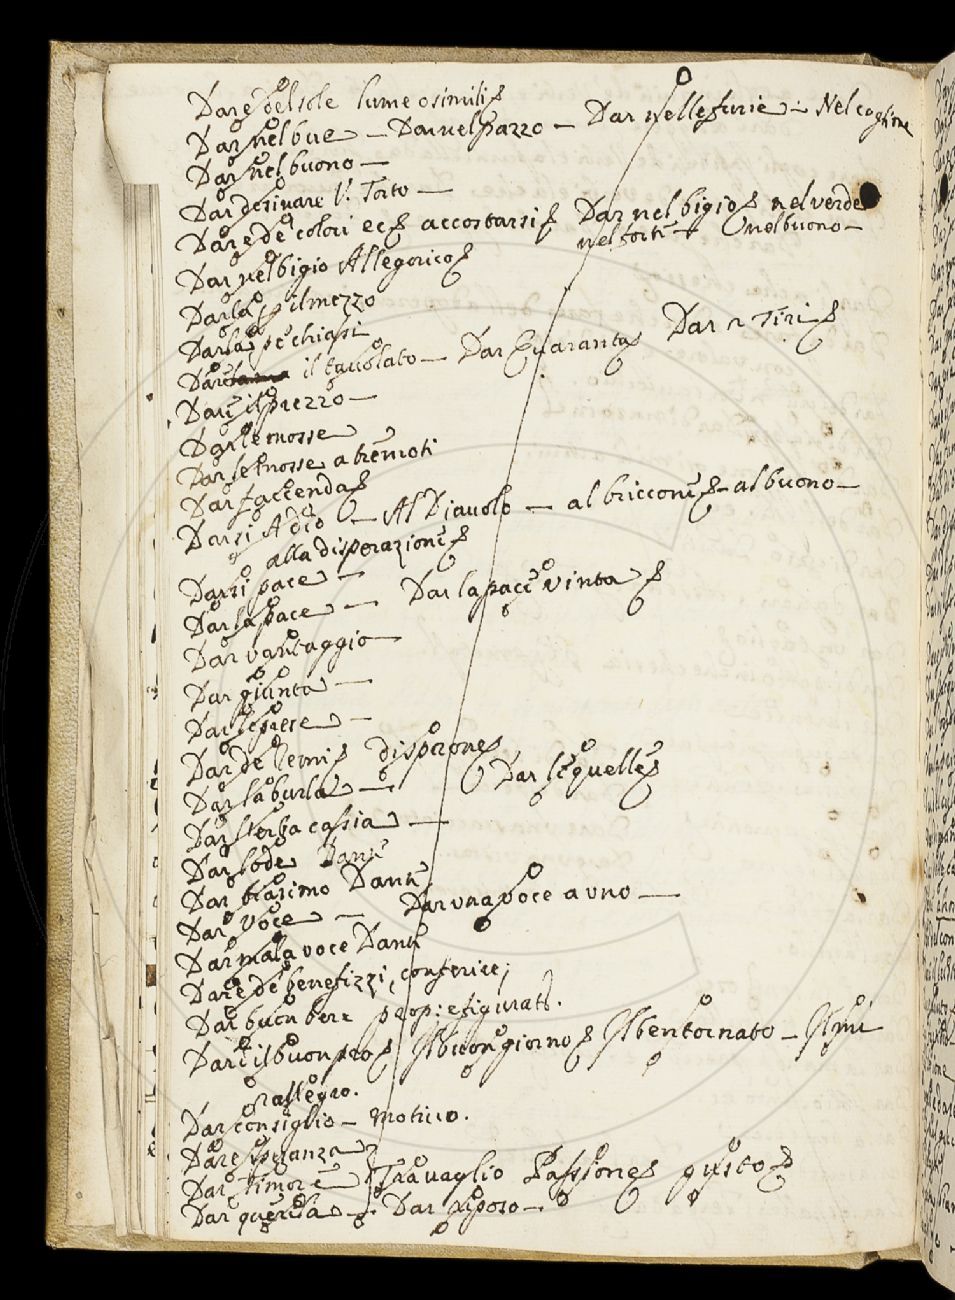 Dare del sole lume o simili
Dar nel bue — Dar nel pazzo — Dar nelle furie — Nel coglione
Dar nel buono —
Dar desinare
Dare de colori ec accostarsi Dar nel bigio nel verde
nel forte — O nel buono —
Dar nel bigio Allegorico
Darla pel mezzo
Darla pe chiassi
Dar il tavolato — Dar Quaranta Dar 2 Tiri
Dare il prezzo —
Dar le mosse
Dar le mosse a tremoti
Dar faccenda
Darsi A dio — Al Diavolo — al briccone — al buono —
alla disperazione
Darsi pace —
Dar la pace — Dar la pace vinta
Dar vantaggio —
Dar giunta —
Dar le prese —
Dar de disperone
Dar la burla — Dar le quelle
Dar cassia —
Dar lode Dante
Dar biasimo Dante
Dar Voce — Dar una voce a uno —
Dar mala voce Dante
Dare de benefizzi, conferire;
Dar buon bere prop: e figurat.
Dare il buon pro Il buon giorno Il ben tornato —
rallegro.
Dar consiglio — motivo.
Dare speranza
Dar timore Travaglio Passione gusto
Dar querela — Dar riposo —